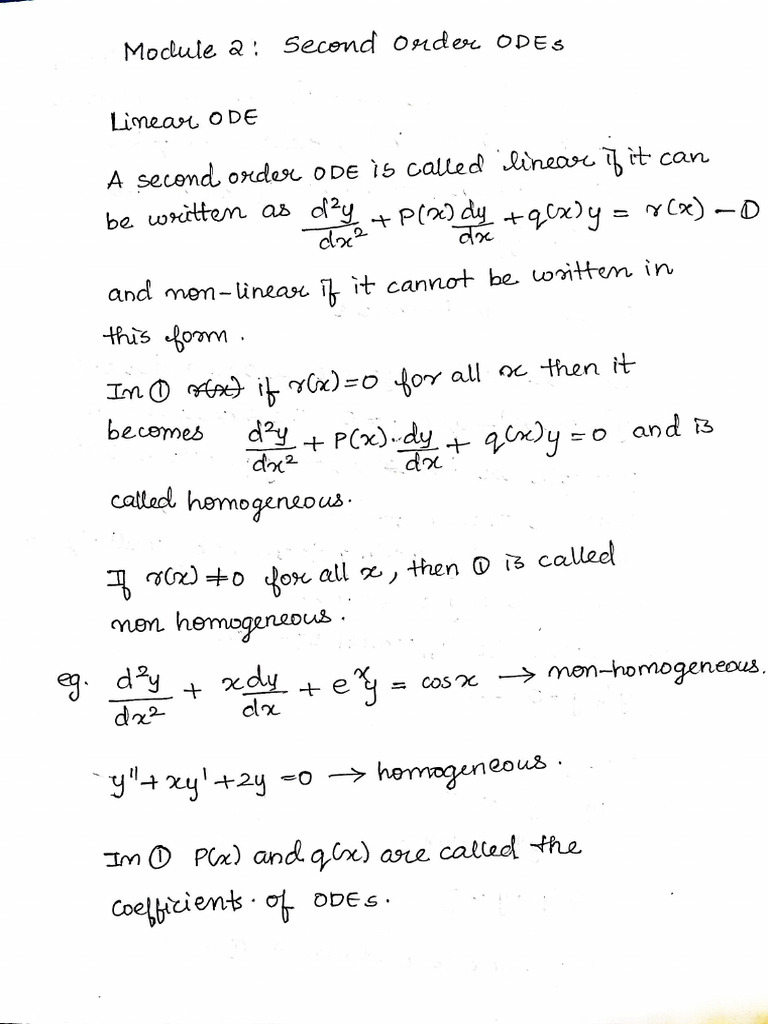 Module 2: Second Order ODEs
Linear ODE
A second order ODE is called linear if it can
be written as d²y/dx² + P(x) dy/dx + q(x)y = r(x) — ①
and non-linear if it cannot be written in
this form.
In ① r(x) if r(x)=0 for all x then it
becomes d²y/dx² + P(x).dy/dx + q(x)y = 0 and is
called homogeneous.
If r(x) ≠ 0 for all x, then ① is called
non homogeneous.
eg. d²y/dx² + xdy/dx + eˣy = cosx → non-homogeneous.
y'' + xy' + 2y = 0 → homogeneous.
In ① P(x) and q(x) are called the
coefficients of ODEs.